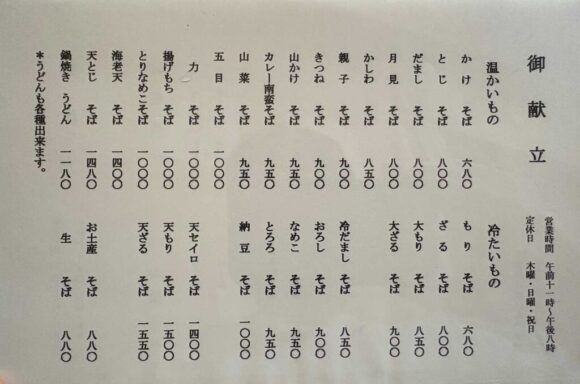 御献立
営業時間　午前十一時～午後八時
定休日　木曜・日曜・祝日
温かいもの
かけ　そば　六八〇
とじ　そば　八〇〇
だまし　そば　八〇〇
月見　そば　八〇〇
かしわ　そば　八五〇
親子　そば　九〇〇
きつね　そば　九〇〇
山かけ　そば　九五〇
カレー南蛮そば　九五〇
山菜　そば　九五〇
五目　そば　一〇〇〇
力　そば　一〇〇〇
揚げもち　そば　一〇〇〇
とりなめこそば　一〇〇〇
海老天　そば　一四〇〇
天とじ　そば　一四八〇
鍋焼き　うどん　一一八〇
＊うどんも各種出来ます。
冷たいもの
もり　そば　六八〇
ざる　そば　八〇〇
大もり　そば　八五〇
大ざる　そば　九〇〇
冷だまし　そば　八五〇
おろし　そば　九〇〇
なめこ　そば　九五〇
とろろ　そば　九五〇
納豆　そば　一〇〇〇
天セイロ　そば　一四〇〇
天もり　そば　一五〇〇
天ざる　そば　一五五〇
お土産　そば　八八〇
生　そば　八八〇